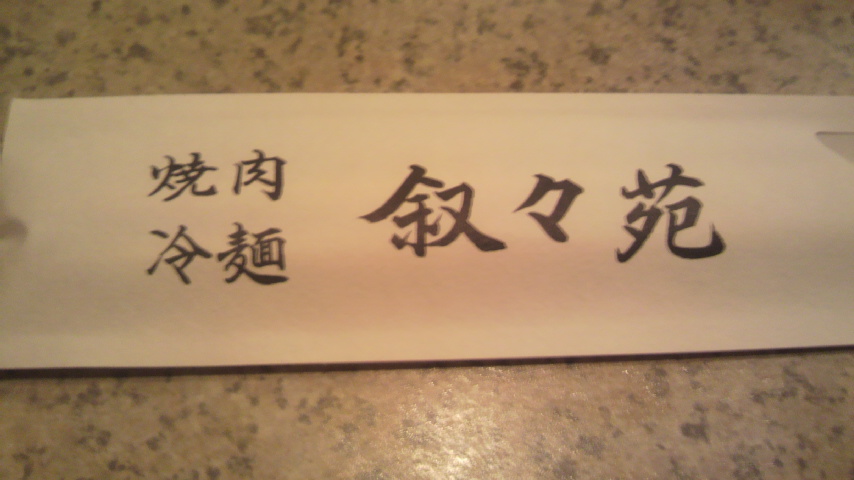 焼肉
冷麺
叙々苑